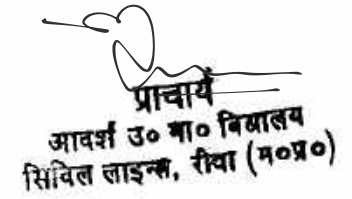 प्राचार्य
आदर्श उ० मा० विद्यालय
सिविल लाइन्स, रीवा (म०प्र०)